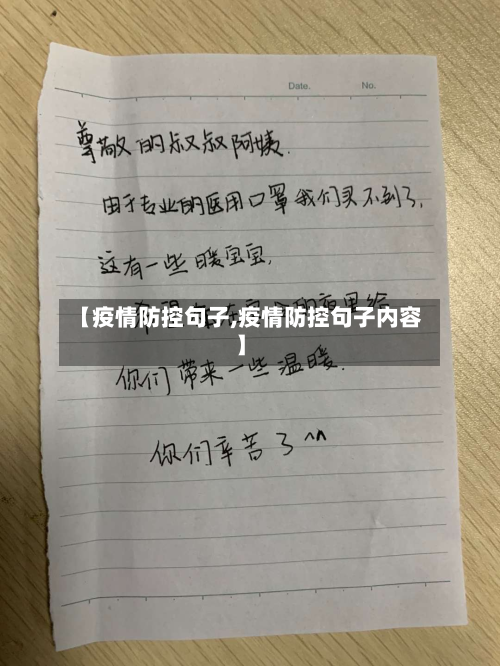 Date. No.
尊敬的叔叔阿姨.
由于专业的医用口罩我们买不到了,
这有一些暖宝宝,
【疫情防控句子,疫情防控句子内容
】
你们带来一些温暖.
你们辛苦了^^